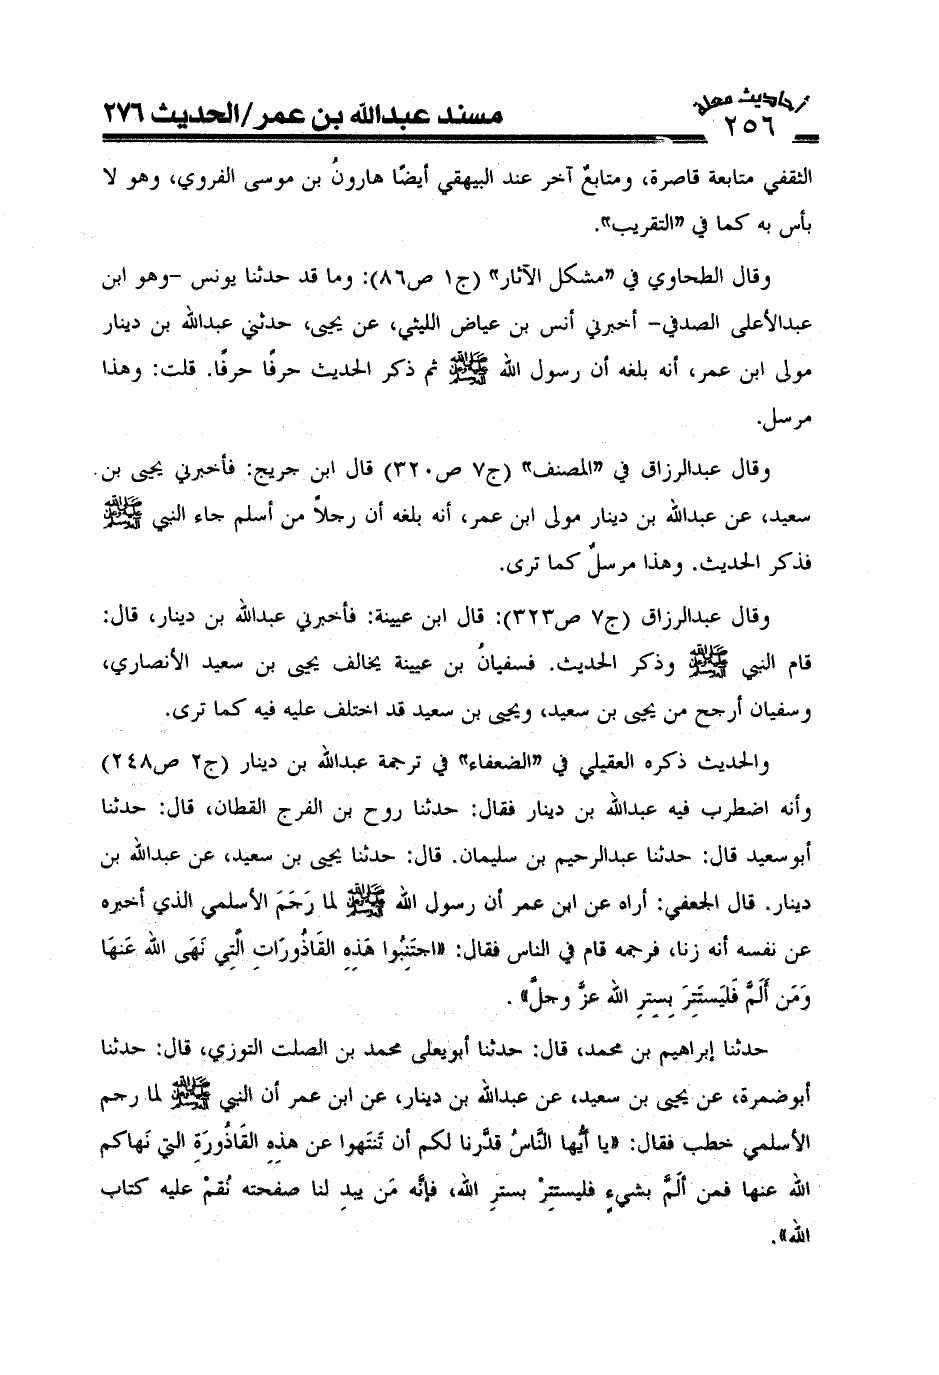 أحاديث معلة
٢٥٦
مسند عبدالله بن عمر/الحديث ٢٧٦
الثقفي متابعة قاصرة، ومتابعٌ آخر عند البيهقي أيضًا هارونُ بن موسى الفروي، وهو لا
بأس به كما في «التقريب».
وقال الطحاوي في «مشكل الآثار» (ج١ ص٨٦): وما قد حدثنا يونس -وهو ابن
عبدالأعلى الصدفي- أخبرني أنس بن عياض الليثي، عن يحيى، حدثني عبدالله بن دينار
مولى ابن عمر، أنه بلغه أن رسول الله ﷺ ثم ذكر الحديث حرفًا حرفًا. قلت: وهذا
مرسل.
وقال عبدالرزاق في «المصنف» (ج٧ ص٣٢٠) قال ابن جريج: فأخبرني يحيى بن
سعيد، عن عبدالله بن دينار مولى ابن عمر، أنه بلغه أن رجلاً من أسلم جاء النبي ﷺ
فذكر الحديث. وهذا مرسلٌ كما ترى.
وقال عبدالرزاق (ج٧ ص٣٢٣): قال ابن عيينة: فأخبرني عبدالله بن دينار، قال:
قام النبي ﷺ وذكر الحديث. فسفيانُ بن عيينة يخالف يحيى بن سعيد الأنصاري،
وسفيان أرجح من يحيى بن سعيد، ويحيى بن سعيد قد اختلف عليه فيه كما ترى.
والحديث ذكره العقيلي في «الضعفاء» في ترجمة عبدالله بن دينار (ج٢ ص٢٤٨)
وأنه اضطرب فيه عبدالله بن دينار فقال: حدثنا روح بن الفرج القطان، قال: حدثنا
أبوسعيد قال: حدثنا عبدالرحيم بن سليمان. قال: حدثنا يحيى بن سعيد، عن عبدالله بن
دينار. قال الجعفي: أراه عن ابن عمر أن رسول الله ﷺ لما رَجَمَ الأسلمي الذي أخبره
عن نفسه أنه زنا، فرجمه قام في الناس فقال: «اجتَنِبُوا هَذِهِ القَاذُورَاتِ الَّتِي نَهَى الله عَنهَا
وَمَن أَلَمَّ فَليَستَتِرَ بِسِتِرِ الله عزَّ وجلَّ» .
حدثنا إبراهيم بن محمد، قال: حدثنا أبويعلى محمد بن الصلت التوزي، قال: حدثنا
أبوضمرة، عن يحيى بن سعيد، عن عبدالله بن دينار، عن ابن عمر أن النبي ﷺ لما رجم
الأسلمي خطب فقال: «يا أيُّها النَّاسُ قدَّرنا لكم أن تَنتَهوا عن هذِهِ القَاذُورَةِ التي نَهاكم
الله عنها فمن ألَمَّ بشيءٍ فليستَتِرْ بسترِ الله، فإنَّه مَن يبدِ لنا صفحته نُقمْ عليه كتاب
الله».